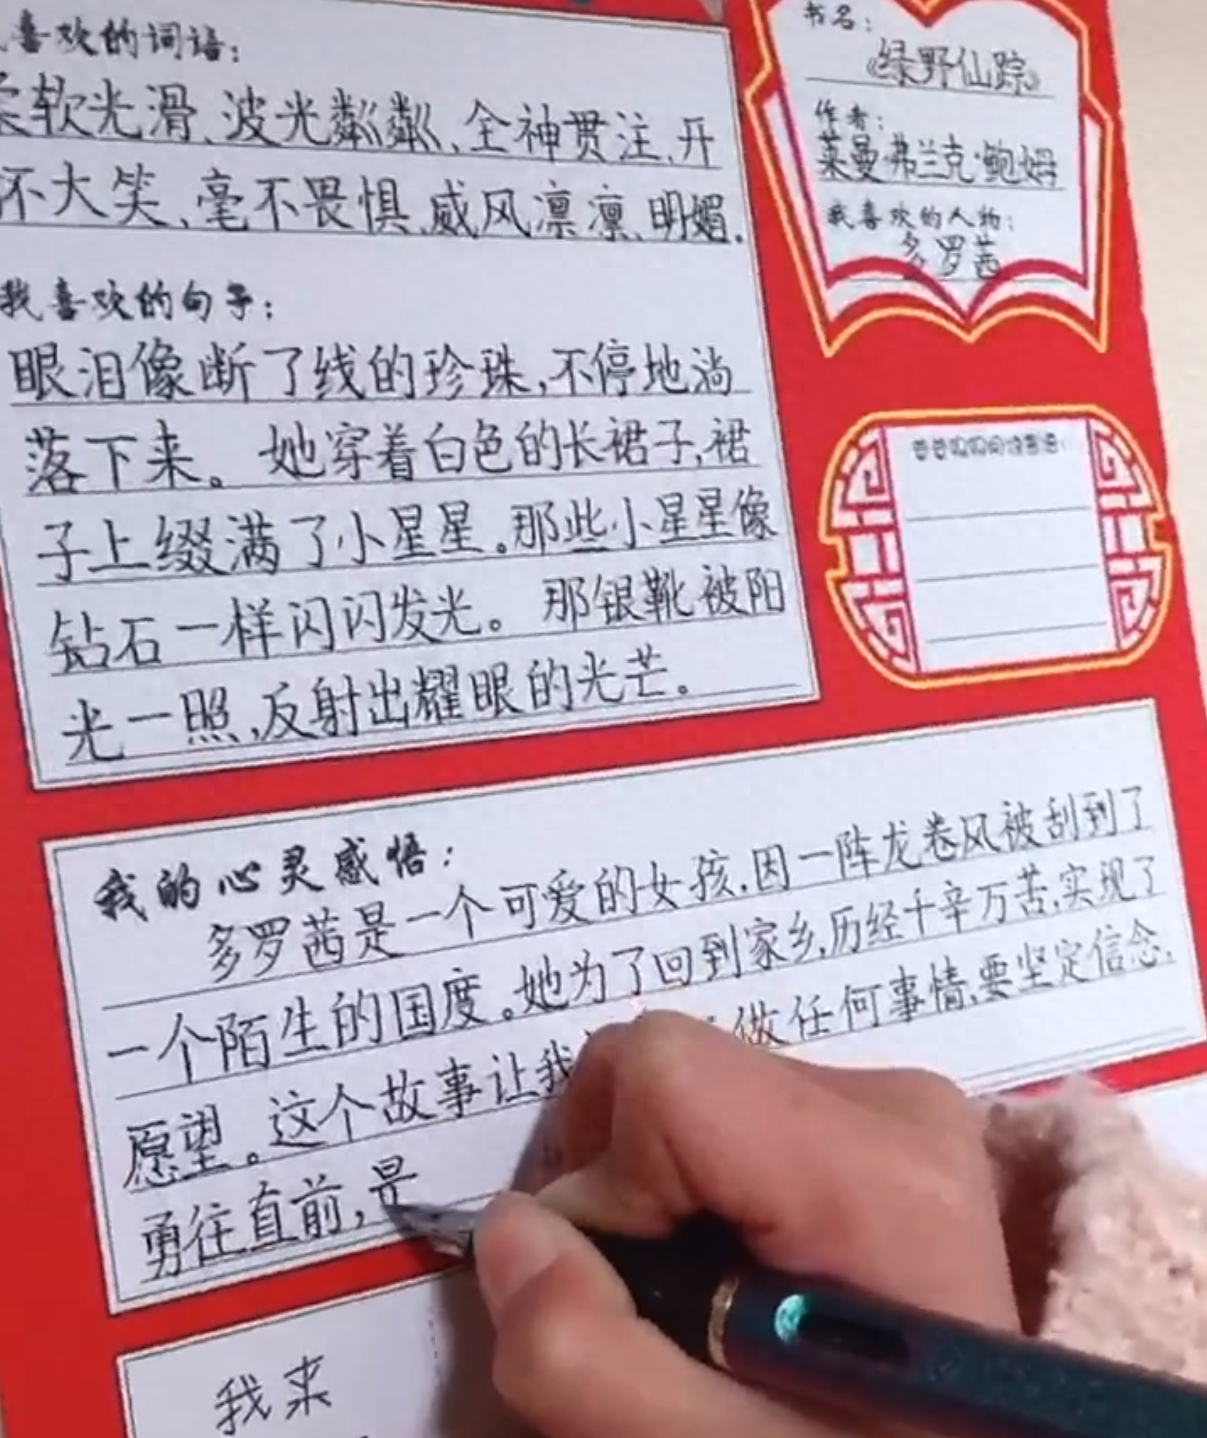 喜欢的词语：
柔软光滑、波光粼粼、全神贯注、开
怀大笑、毫不畏惧、威风凛凛、明媚.
我喜欢的句子：
眼泪像断了线的珍珠,不停地淌
落下来。她穿着白色的长裙子,裙
子上缀满了小星星。那些小星星像
钻石一样闪闪发光。那银靴被阳
光一照,反射出耀眼的光芒。
书名：
《绿野仙踪》
作者：
莱曼·弗兰克·鲍姆
我喜欢的人物：
多罗茜
我的心灵感悟：
多罗茜是一个可爱的女孩.因一阵龙卷风被刮到了
一个陌生的国度。她为了回到家乡,历经千辛万苦,实现了
愿望。这个故事让我 做任何事情,要坚定信念,
勇往直前,是
我来